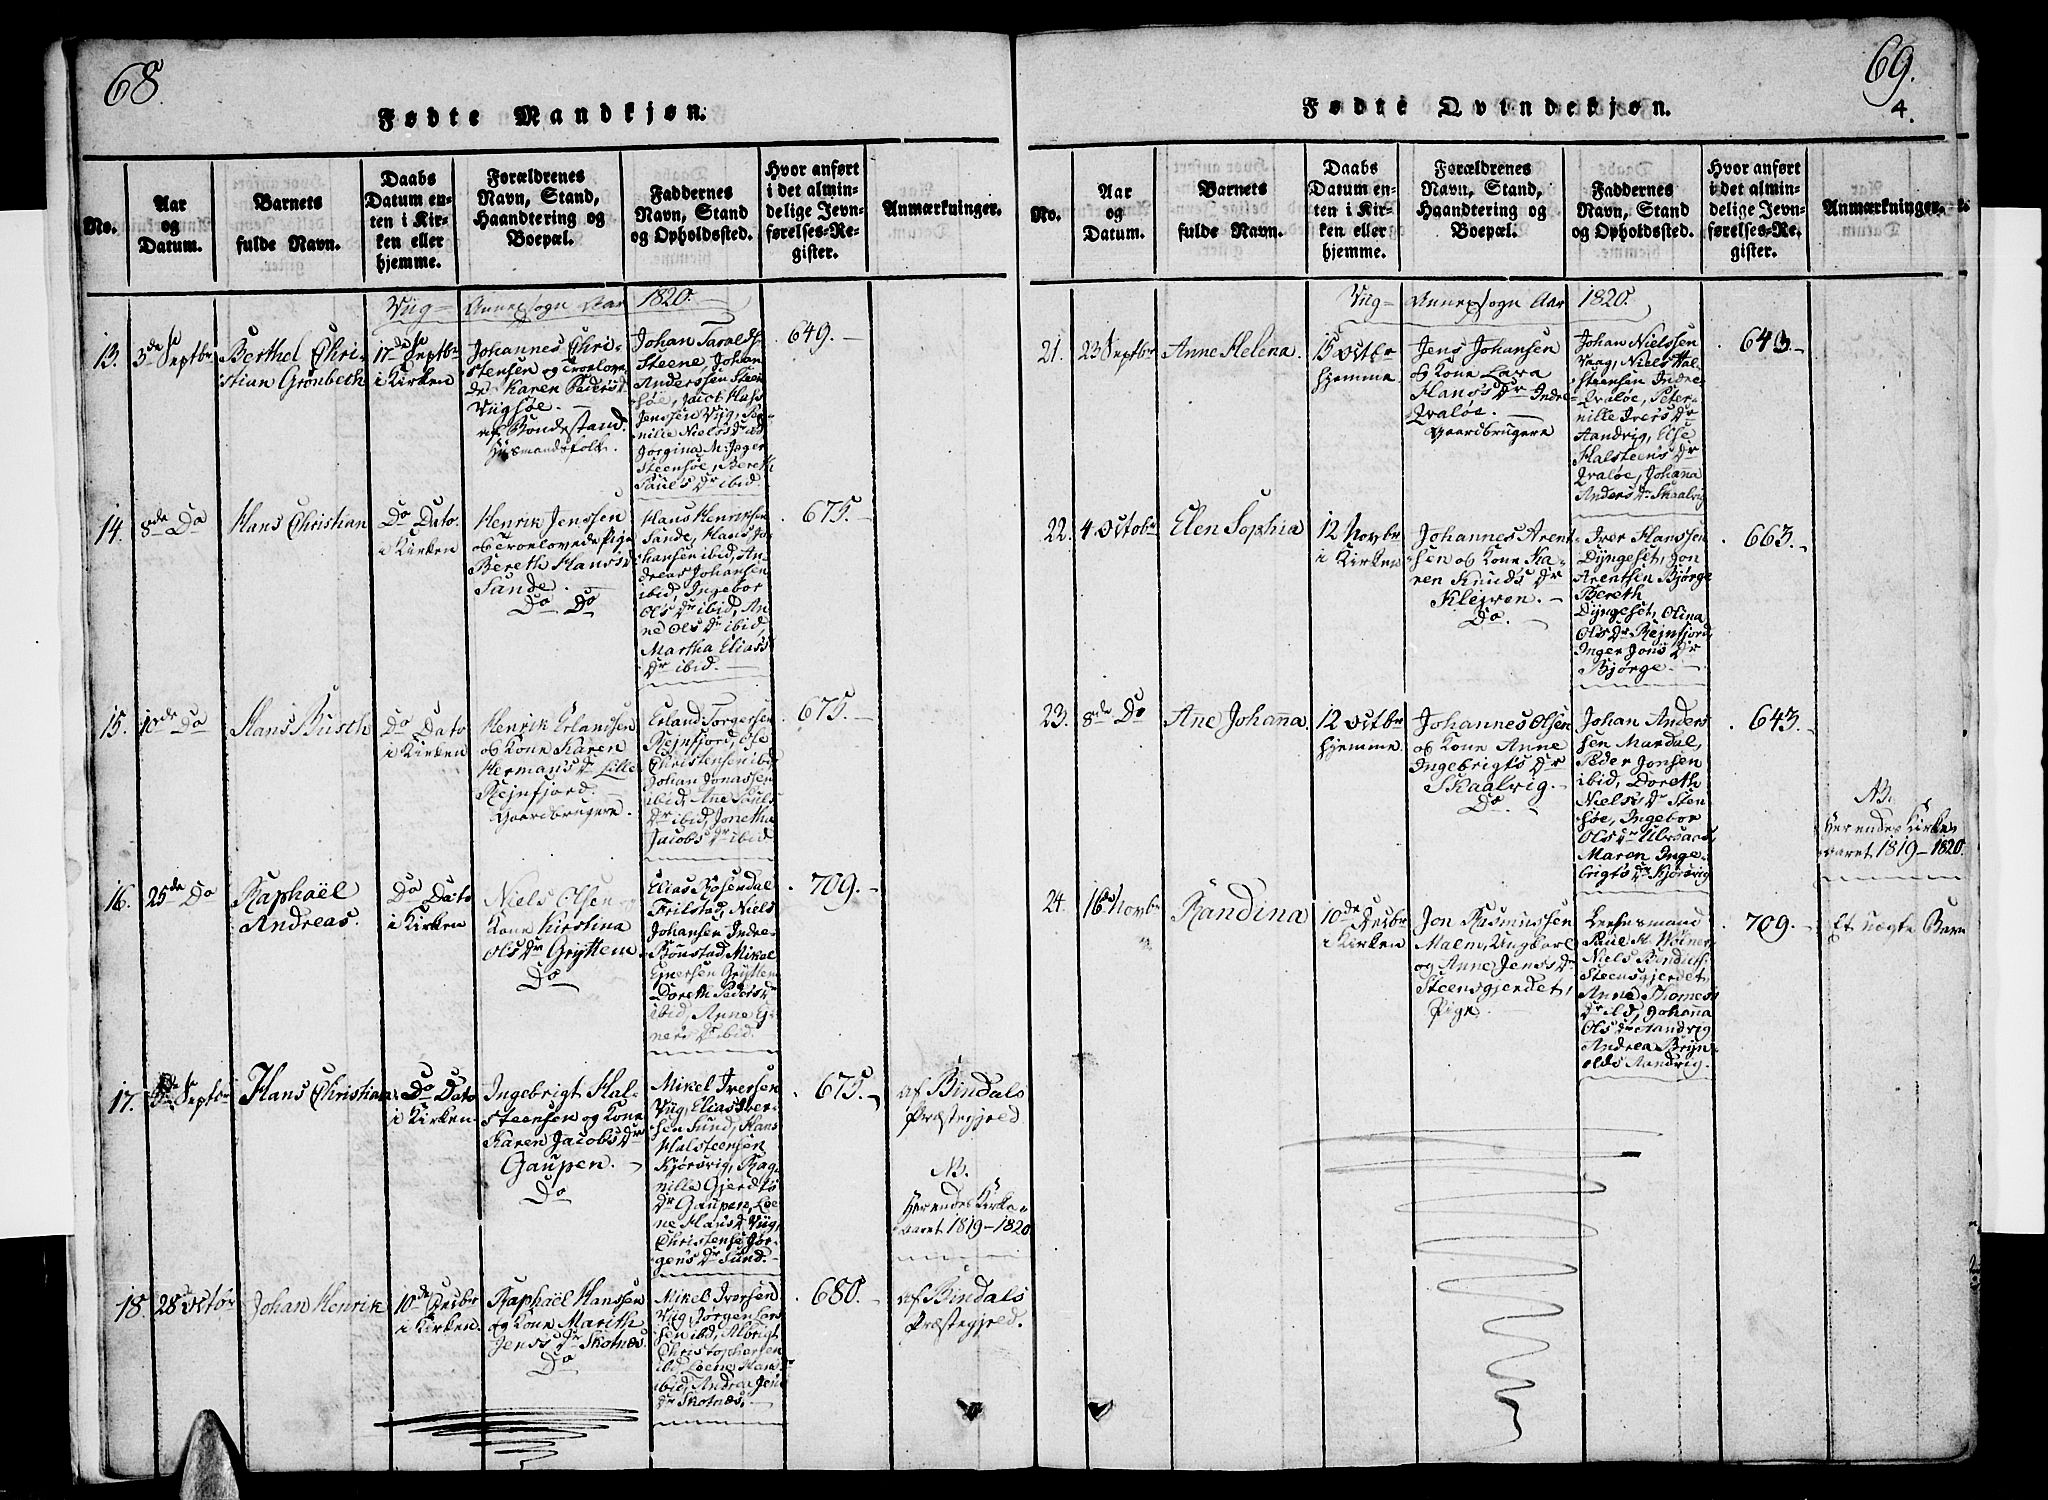 68.
Fødte Mandkjøn.
No.
Aar
og
Datum.
Barnets
fulde Navn.
Daabs
Datum en-
ten i Kir-
ken eller
hjemme.
Forældrenes
Navn, Stand,
Haandtering og
Boepæl.
Faddernes
Navn, Stand
og Opholdssted.
Hvor anført
i det almin-
delige Jevn-
førelses-Re-
gister.
Anmærkninger.
Viig- Annexsogn Aar 1820.
13.
3de Septbr
Berthel Chri-
stian Grönbeth
17de Septbr
i Kirken
Johannes Chri-
stensen og Troelove
Dr Karen Peders Dr
Viigsøe.
af Bondestand.
Huusmandsfolk.
Johan Taralds
Steene, Johan
Anderssen Steen
søe, Jacob Hass
Jenssen Viig, Per-
nilie Niels Dr
Jörgina M. Jæger
Steensøe, Bereth
Pauels Dr ibid.
649.
14.
8de Do
Hans Christian
Do Dato
i Kirken
Henrik Jenssen
og Troelovede Pige
Bereth Hans Dr
Sande.
Do Do
Hans Henriksen
Sande, Hans Jo-
hansen ibid, An-
dreas Johansen
ibid, Ingebor
Ols Dr ibid, An-
ne Ols Dr ibid,
Martha Elias
Dr ibid.
675.
15.
10de Do
Hans Busch
Do Dato
i Kirken
Henrik Erlandsen
og Kone Karen
Hermans Dr Lille
Rejnfjord.
Gaardbrugere.
Erland Torgersen
Rejnfjord, Ole
Christensen ibid
Johan Jonassen
ibid, Ane Pauls
Dr ibid, Jonetha
Jacobs Dr ibid
675.
16.
25de Do
Raphaël
Andreas.
Do Dato
i Kirken
Niels Olsen og
Kone Kirstina
Ols Dr Gryttem.
Do
Elias Rosendal
Terilstad, Niels
Johansen Indre-
Rönstad, Mikel
Ejnersen Gryttem
Doreth Peders Dr
ibid, Anne Ej-
ners Dr ibid.
709.
17.
Septbr
Hans Christian
Do Dato
i Kirken
Ingebrigt Hal-
steensen og Kone
Karen Jacobs Dr
Gaupen.
Do
Mikel Iversen
Viig, Elias Iver-
sen Sund, Hans
Halsteensen
Kjørsvig, Rag-
nille Gjerdts
Dr Gaupen, Lee-
ne Hans Dr Viig,
Christense Jör-
gens Dr Sund.
675.
af Bindals
Præstegjeld
NB.
Her endes Kirke-
aaret 1819-1820
18.
28 Octobr
Johan Henrik
10de Decbr
i Kirken.
Raphaël Hanssen
og Kone Marith
Jens Dr Skotnæs.
Do
Mikel Iversen
Viig, Jörgen Lars
sen ibd, Albrigt
Christophersen
ibd, Leene Hans
ibid, Andrea Jens
Dr Skotnæs.
680.
af Bindals
Præstegjeld.
69.
4.
Fødte Qvindekjøn.
No.
Aar
og
Datum.
Barnets
fulde Navn.
Daabs
Datum en-
ten i Kir-
ken eller
hjemme.
Forældrenes
Navn, Stand,
Haandtering og
Boepæl.
Faddernes
Navn, Stand
og Opholdssted.
Hvor anført
i det almin-
delige Jevn-
førelses-Re-
gister.
Anmærkninger.
Viig- Annexsogn Aar 1820.
21.
23 Septbr
Anne Helena.
15 Octbr
hjemme
Jens Johansen
og Kone Lava
Hans Dr Indre
Qvaløe.
Gaardbrugere
Johan Nielssen
Vaag, Niels Hal-
steensen Indre-
Qvaløe, Peter-
nille Ivers Dr
Aandvig, Else
Halsteens Dr
Qvaløe, Johana
Anders Dr Skaalvig
643.
22.
4. Octobr
Elen Sophia
12 Novbr
i Kirken
Johannes Arent-
sen og Kone Ka-
ren Knuds Dr
Klejven.
Do.
Iver Hanssen
Dyngeset, Jon
Arentsen Bjørge
Bereth
Dyngeset, Olina
Ols Dr Rejnfjord,
Inger Jons Dr
Bjørge.
663.
23.
8de Do
Ane Johana.
12 Octbr
hjemme.
Johannes Olsen
og Kone Anne
Ingebrigts Dr
Skaalvig.
Do.
Johan Anders
sen Mardal,
Peder Jonsen
ibid, Doreth
Niels Dr Sten
søe, Ingebor
Ols Dr Ulvsaas,
Maren Inge-
brigts Dr Kjørsvig
643.
NB.
Her endes Kirke-
aaret 1819-1820.
24.
16 Novbr
Randina
10de Decbr
i Kirken
Jon Rasmussen
Malm, Ungkarl
og Anne Jens Dr
Steensgjerdet,
Pige.
Leensmand
Paul H. Wolner,
Niels Bendicts
Steensgjerdet,
Anne Thomes
Dr ibd, Johana
Ols Dr Aandvig
Andrea Bryn-
olds Aandvig.
709.
Et uægte Barn